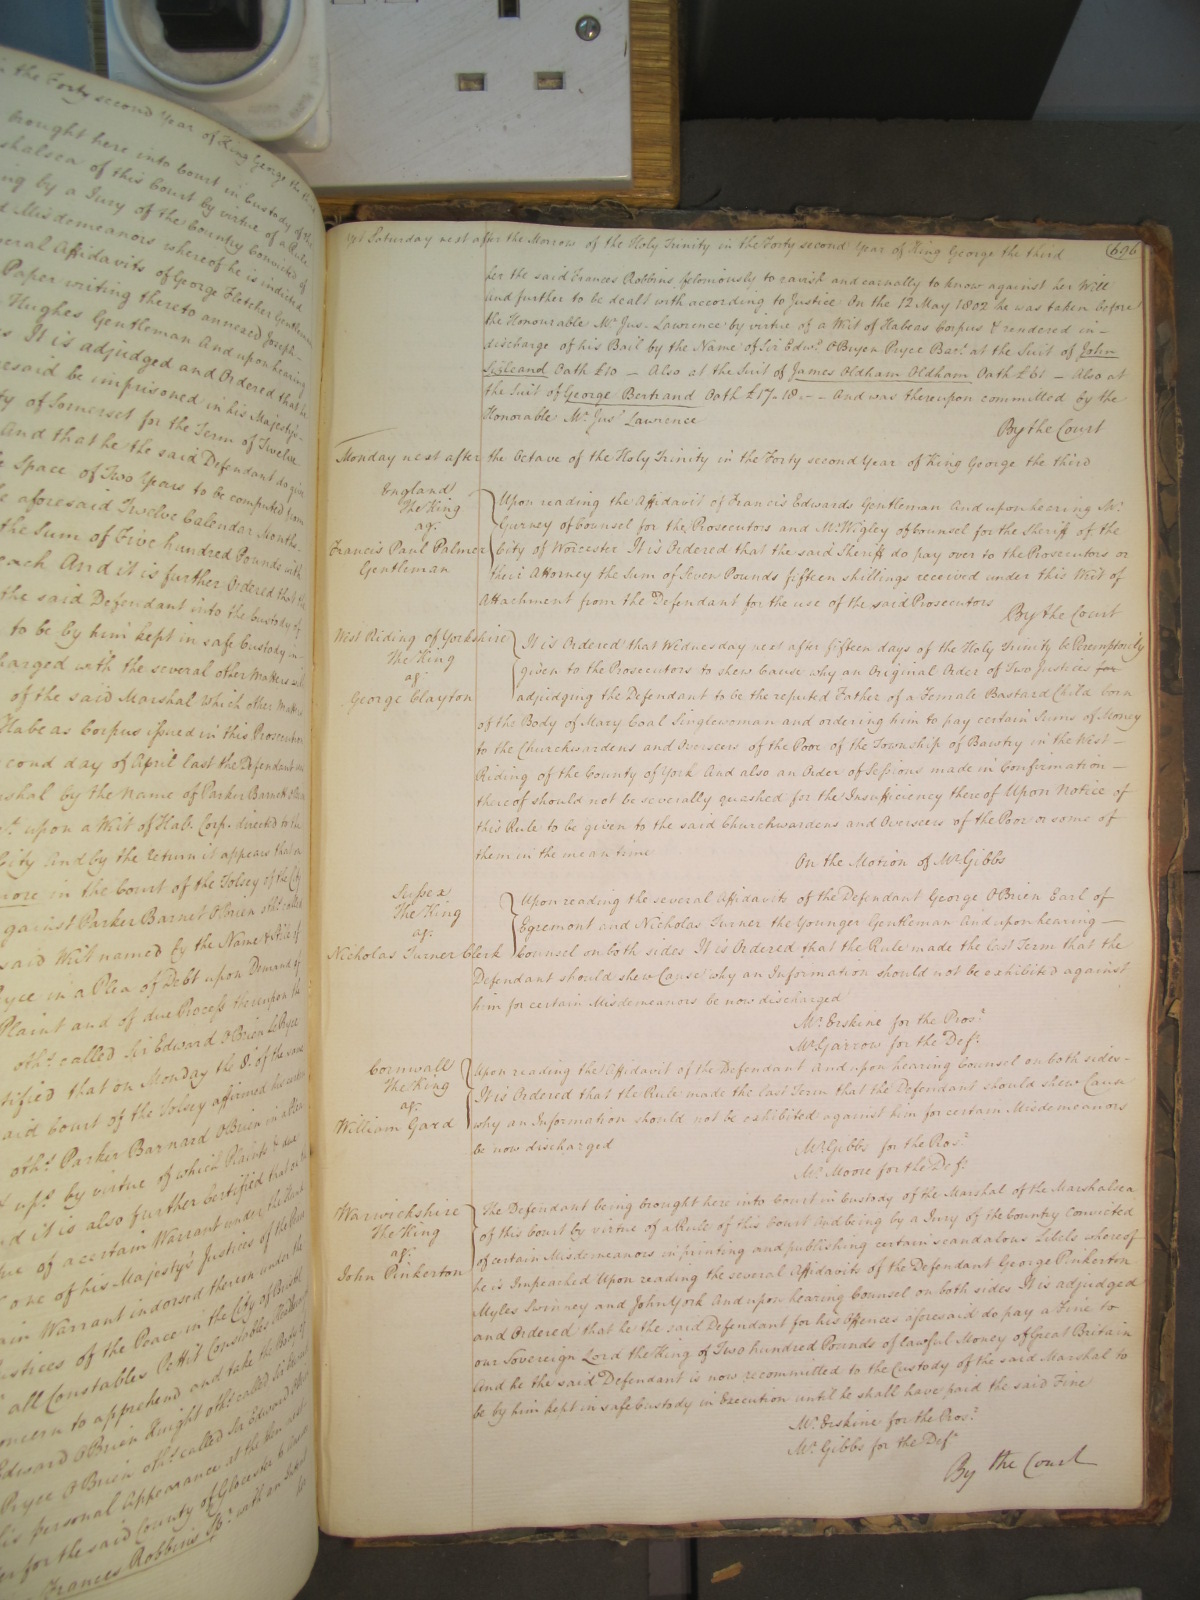 in the Forty second Year of King George the third
brought here into Court in Custody of the
Marshalsea of this Court by virtue of a Rule
being by a Jury of the Country Convicted of
Misdemeanors whereof he is indicted
several Affidavits of George Fletcher Gentleman
Paper writing thereto annexed Joseph
Hughes Gentleman And upon hearing
It is adjudged and Ordered that he
aforesaid be imprisoned in his Majesty's
of Somerset for the Term of Twelve
And that he the said Defendant do give
Space of Two Years to be computed from
aforesaid Twelve Calendar Months
the Sum of Five hundred Pounds with
each And it is further Ordered that the
the said Defendant into the Custody of
to be by him kept in safe Custody
charged with the several other Matters
of the said Marshal Which other Matters
Habeas Corpus issued in this Prosecution
second day of April last the Defendant was
Marshal by the Name of Parker Barnett
upon a Writ of Hab. Corp. directed to the
City And by the return it appears that
in the Court of the Tolsey of the City
against Parker Barnet O'Brien
said Writ named by the Name
Pryce in a Plea of Debt upon Demand of
Plaint and of due Process thereupon the
othe. called Sir Edward O'Brien
that on Monday the 8. of the same
said Court of the Tolsey affirmed
othe. Parker Barnard O'Brien
by virtue of which Plaint & due
it is also further Certified that on the
of a certain Warrant under the Hand
one of his Majesty's Justices of the Peace
Warrant indorsed thereon under the
Justices of the Peace in the City of Bristol
all Constables Pettit Constables
to apprehend and take the Body of
Edward O'Brien Knight othe. called Sir
Pryce O'Brien othe. called Sir Edward
his personal Appearance at the
for the said County of Glocester to
Frances Robbins with an Intent
next Saturday next after the Morrow of the Holy Trinity in the Forty second Year of King George the third 696
her the said Frances Robbins feloniously to ravish and carnally to know against her Will
and further to be dealt with according to Justice On the 12 May 1802 he was taken before
the Honourable Mr. Jus. Lawrence by virtue of a Writ of Habeas Corpus & rendered in
discharge of his Bail by the Name of Sir Edwd. O'Bryen Pryce Bart. at the Suit of John
Oath £10 — Also at the Suit of James Oldham Oldham Oath £61 — Also at
the Suit of George Bertrand Oath £17-18 - - And was thereupon committed by the
Honorable Mr. Jus. Lawrence
By the Court
Monday next after the Octave of the Holy Trinity in the Forty second Year of King George the third
England
The King
agt.
Francis Paul Palmer
Gentleman
Upon reading the Affidavit of Francis Edwards Gentleman And upon hearing Mr.
Gurney of Counsel for the Prosecutors and Mr. Wigley of Counsel for the Sheriff of the
City of Worcester It is Ordered that the said Sheriff do pay over to the Prosecutors or
their Attorney the Sum of Seven Pounds fifteen shillings received under this Writ of
Attachment from the Defendant for the use of the said Prosecutors
By the Court
West Riding of Yorkshire
The King
agt.
George Clayton
It is Ordered that Wednesday next after fifteen days of the Holy Trinity be Peremptorily
given to the Prosecutors to shew Cause why an Original Order of Two Justices for
adjudging the Defendant to be the reputed Father of a Female Bastard Child born
of the Body of Mary Coal Singlewoman and ordering him to pay certain Sums of Money
to the Churchwardens and Overseers of the Poor of the Township of Bawtry in the West
Riding of the County of York And also an Order of Sessions made in Confirmation
thereof should not be severally quashed for the Insufficiency thereof Upon Notice of
this Rule to be given to the said Churchwardens and Overseers of the Poor or some of
them in the mean time
On the Motion of Mr. Gibbs
Sussex
The King
agt.
Nicholas Turner Clerk
Upon reading the several Affidavits of the Defendant George O'Brien Earl of
Egremont and Nicholas Turner the Younger Gentleman And upon hearing
Counsel on both sides It is Ordered that the Rule made the last Term that the
Defendant should shew Cause why an Information should not be exhibited against
him for certain Misdemeanors be now discharged
Mr. Erskine for the Prosr.
Mr. Garrow for the Deft.
Cornwall
The King
agt.
William Gard
Upon reading the Affidavit of the Defendant And upon hearing Counsel on both sides
It is Ordered that the Rule made the last Term that the Defendant should shew Cause
why an Information should not be exhibited against him for certain Misdemeanors
be now discharged
Mr. Gibbs for the Prosr.
Mr. Moore for the Deft.
Warwickshire
The King
agt.
John Pinkerton
The Defendant being brought here into Court in Custody of the Marshal of the Marshalsea
of this Court by virtue of a Rule of this Court And being by a Jury of the Country Convicted
of certain Misdemeanors in printing and publishing certain scandalous Libels whereof
he is Impeached Upon reading the several Affidavits of the Defendant George Pinkerton
Myles Swinney and John York And upon hearing Counsel on both sides It is adjudged
and Ordered that he the said Defendant for his Offences aforesaid do pay a Fine to
our Sovereign Lord the King of Two hundred Pounds of lawful Money of Great Britain
And he the said Defendant is now recommitted to the Custody of the said Marshal to
be by him kept in safe Custody in Execution until he shall have paid the said Fine
Mr. Erskine for the Prosr.
Mr. Gibbs for the Deft.
By the Court